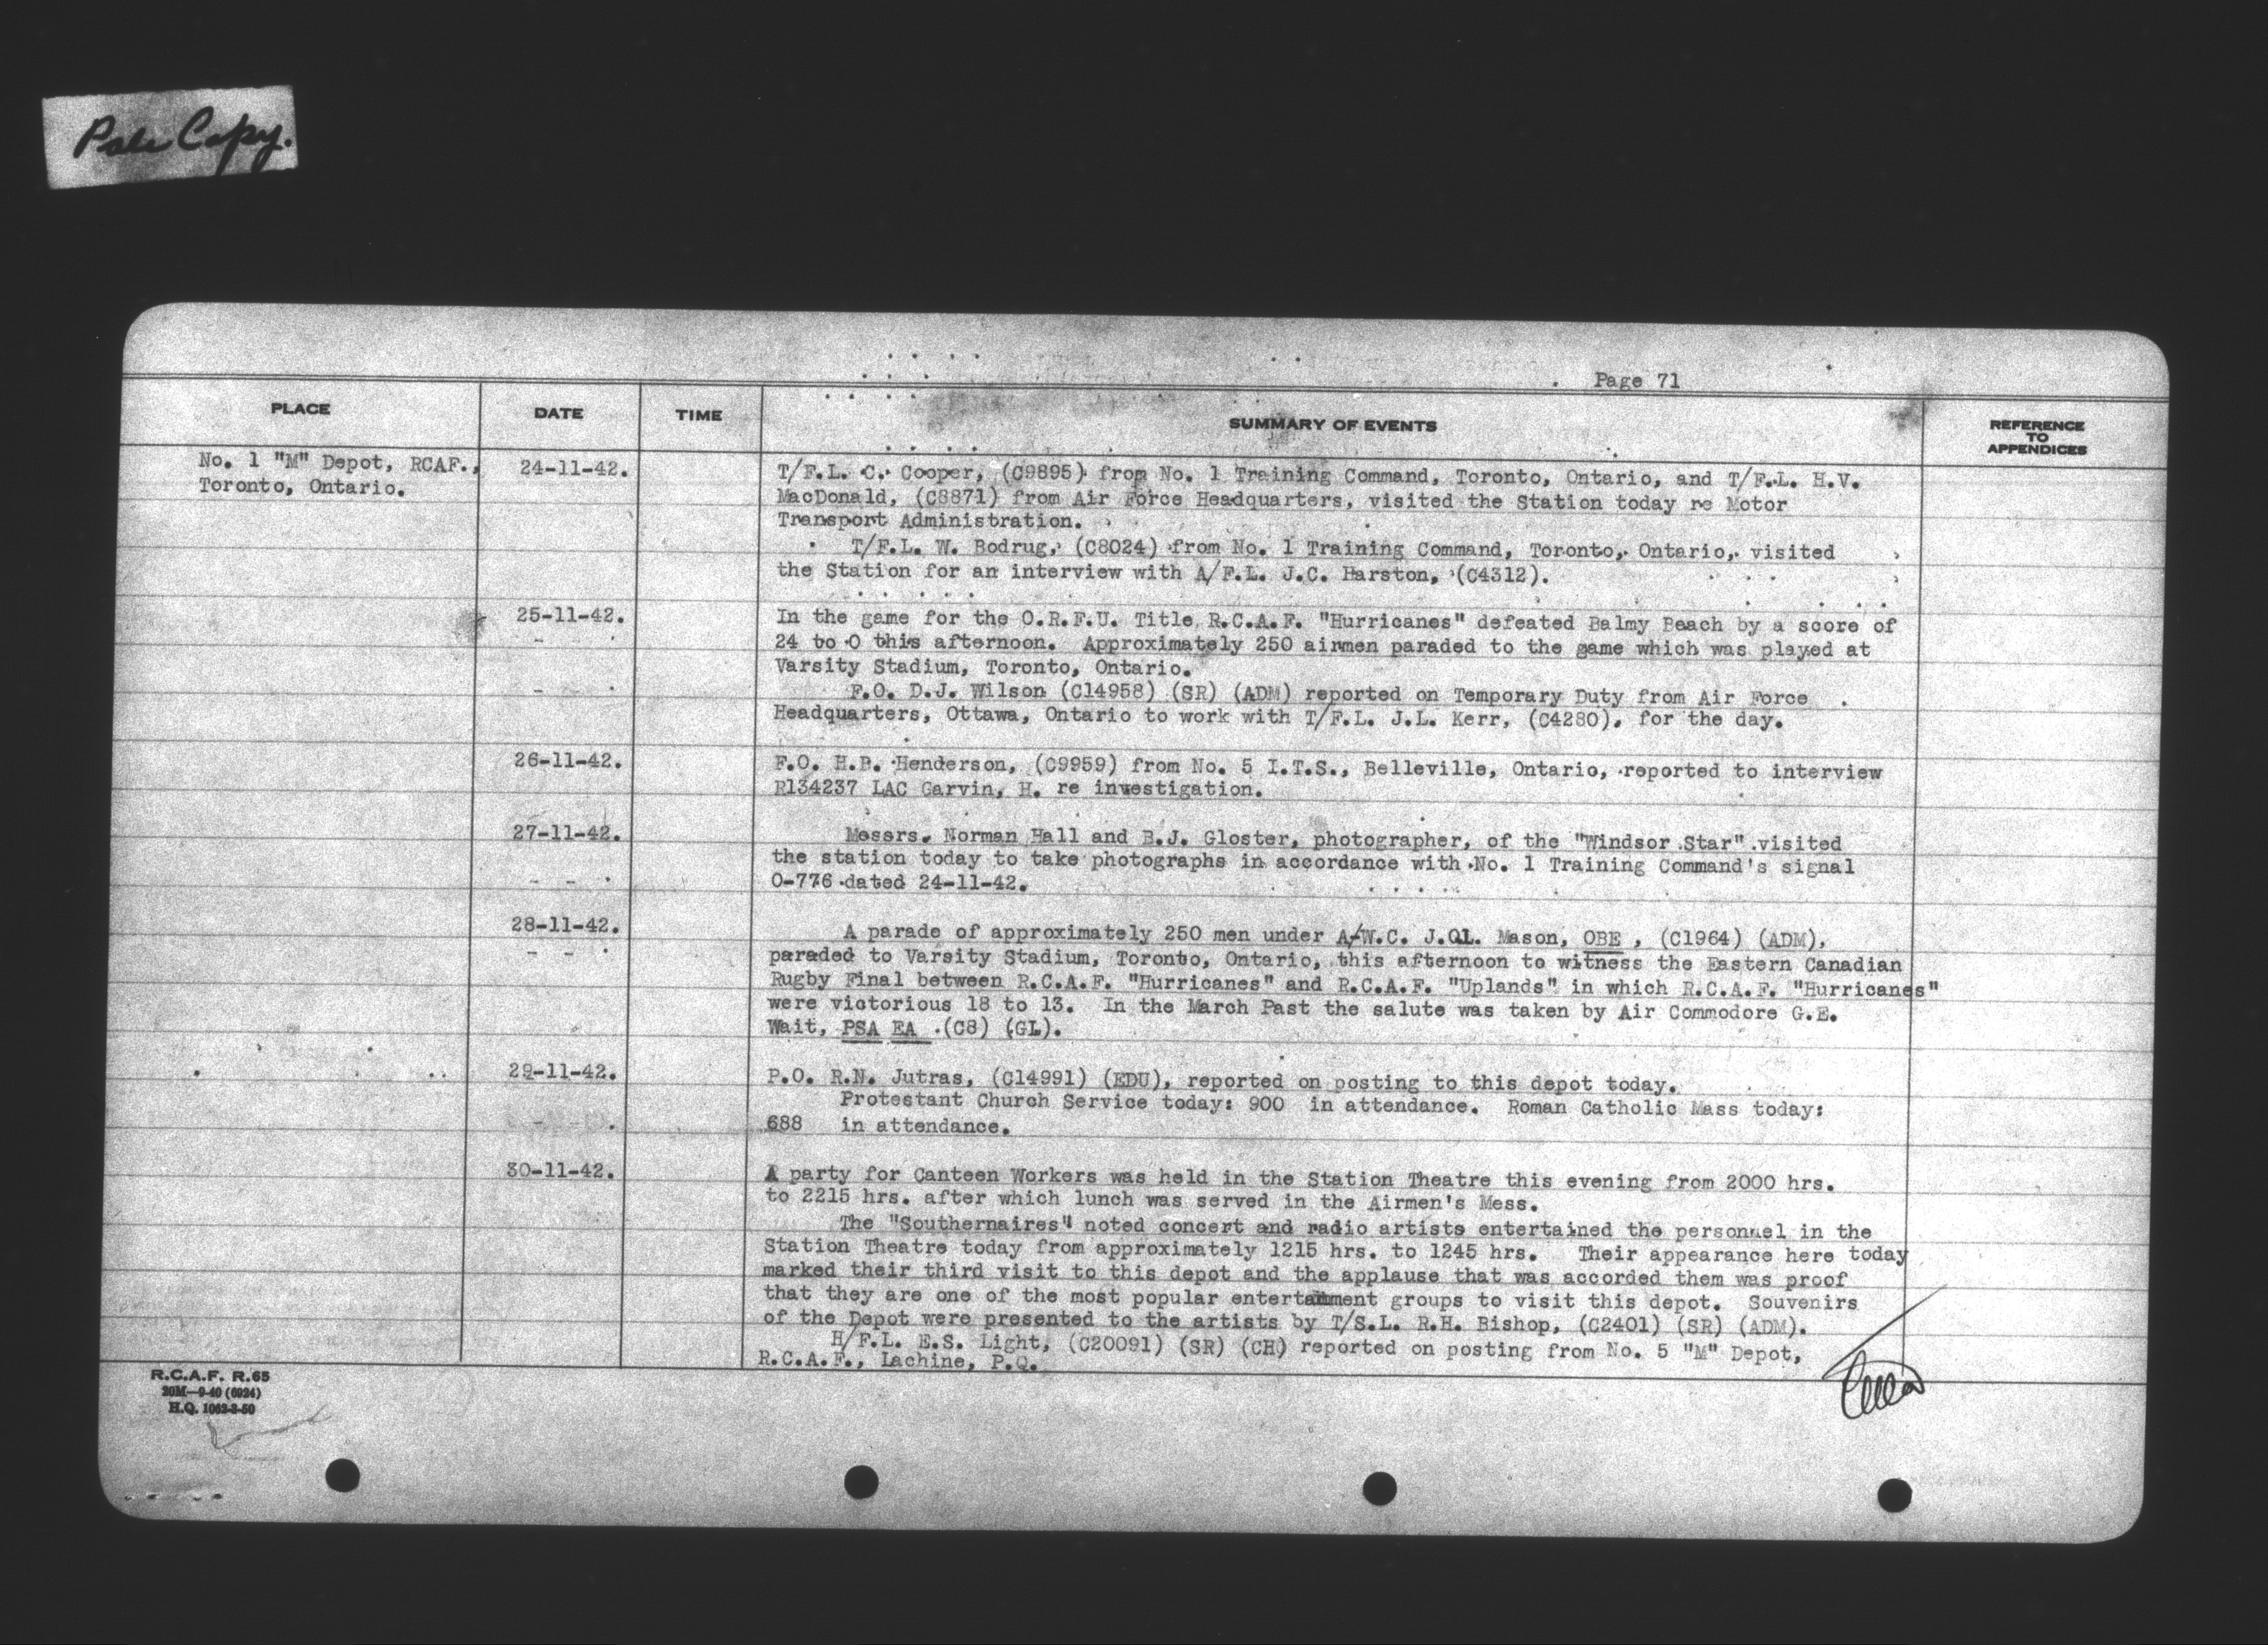 Pale Copy.
Page 71
PLACE DATE TIME SUMMARY OF EVENTS REFERENCE TO APPENDICES
No. 1 "M" Depot, RCAF., 24-11-42. T/F.L. C. Cooper, (C9895) from No. 1 Training Command, Toronto, Ontario, and T/F.L. H.V.
Toronto, Ontario. MacDonald, (C8871) from Air Force Headquarters, visited the Station today re Motor
Transport Administration.
T/F.L. W. Bodrug, (C8024) from No. 1 Training Command, Toronto, Ontario, visited
the Station for an interview with A/F.L. J.C. Harston, (C4312).
25-11-42. In the game for the O.R.F.U. Title R.C.A.F. "Hurricanes" defeated Balmy Beach by a score of
24 to 0 this afternoon. Approximately 250 airmen paraded to the game which was played at
Varsity Stadium, Toronto, Ontario.
F.O. D.J. Wilson (C14958) (SR) (ADM) reported on Temporary Duty from Air Force
Headquarters, Ottawa, Ontario to work with T/F.L. J.L. Kerr, (C4280), for the day.
26-11-42. F.O. H.B. Henderson, (C9959) from No. 5 I.T.S., Belleville, Ontario, reported to interview
R134237 LAC Garvin, H. re investigation.
27-11-42. Messrs. Norman Hall and B.J. Gloster, photographer, of the "Windsor Star" visited
the station today to take photographs in accordance with No. 1 Training Command's signal
O-776 dated 24-11-42.
28-11-42. A parade of approximately 250 men under A/W.C. J.OL. Mason, OBE , (C1964) (ADM),
paraded to Varsity Stadium, Toronto, Ontario, this afternoon to witness the Eastern Canadian
Rugby Final between R.C.A.F. "Hurricanes" and R.C.A.F. "Uplands" in which R.C.A.F. "Hurricanes"
were victorious 18 to 13. In the March Past the salute was taken by Air Commodore G.E.
Wait, PSA EA (C8) (GL).
29-11-42. P.O. R.N. Jutras, (C14991) (EDU), reported on posting to this depot today.
Protestant Church Service today: 900 in attendance. Roman Catholic Mass today:
688 in attendance.
30-11-42. A party for Canteen Workers was held in the Station Theatre this evening from 2000 hrs.
to 2215 hrs. after which lunch was served in the Airmen's Mess.
The "Southernaires" noted concert and radio artists entertained the personnel in the
Station Theatre today from approximately 1215 hrs. to 1245 hrs. Their appearance here today
marked their third visit to this depot and the applause that was accorded them was proof
that they are one of the most popular entertainment groups to visit this depot. Souvenirs
of the Depot were presented to the artists by T/S.L. R.H. Bishop, (C2401) (SR) (ADM).
H/F.L. E.S. Light, (C20091) (SR) (CH) reported on posting from No. 5 "M" Depot,
R.C.A.F., Lachine, P.Q.
R.C.A.F. R.65
20M—9-40 (6924)
H.Q. 1062-3-50